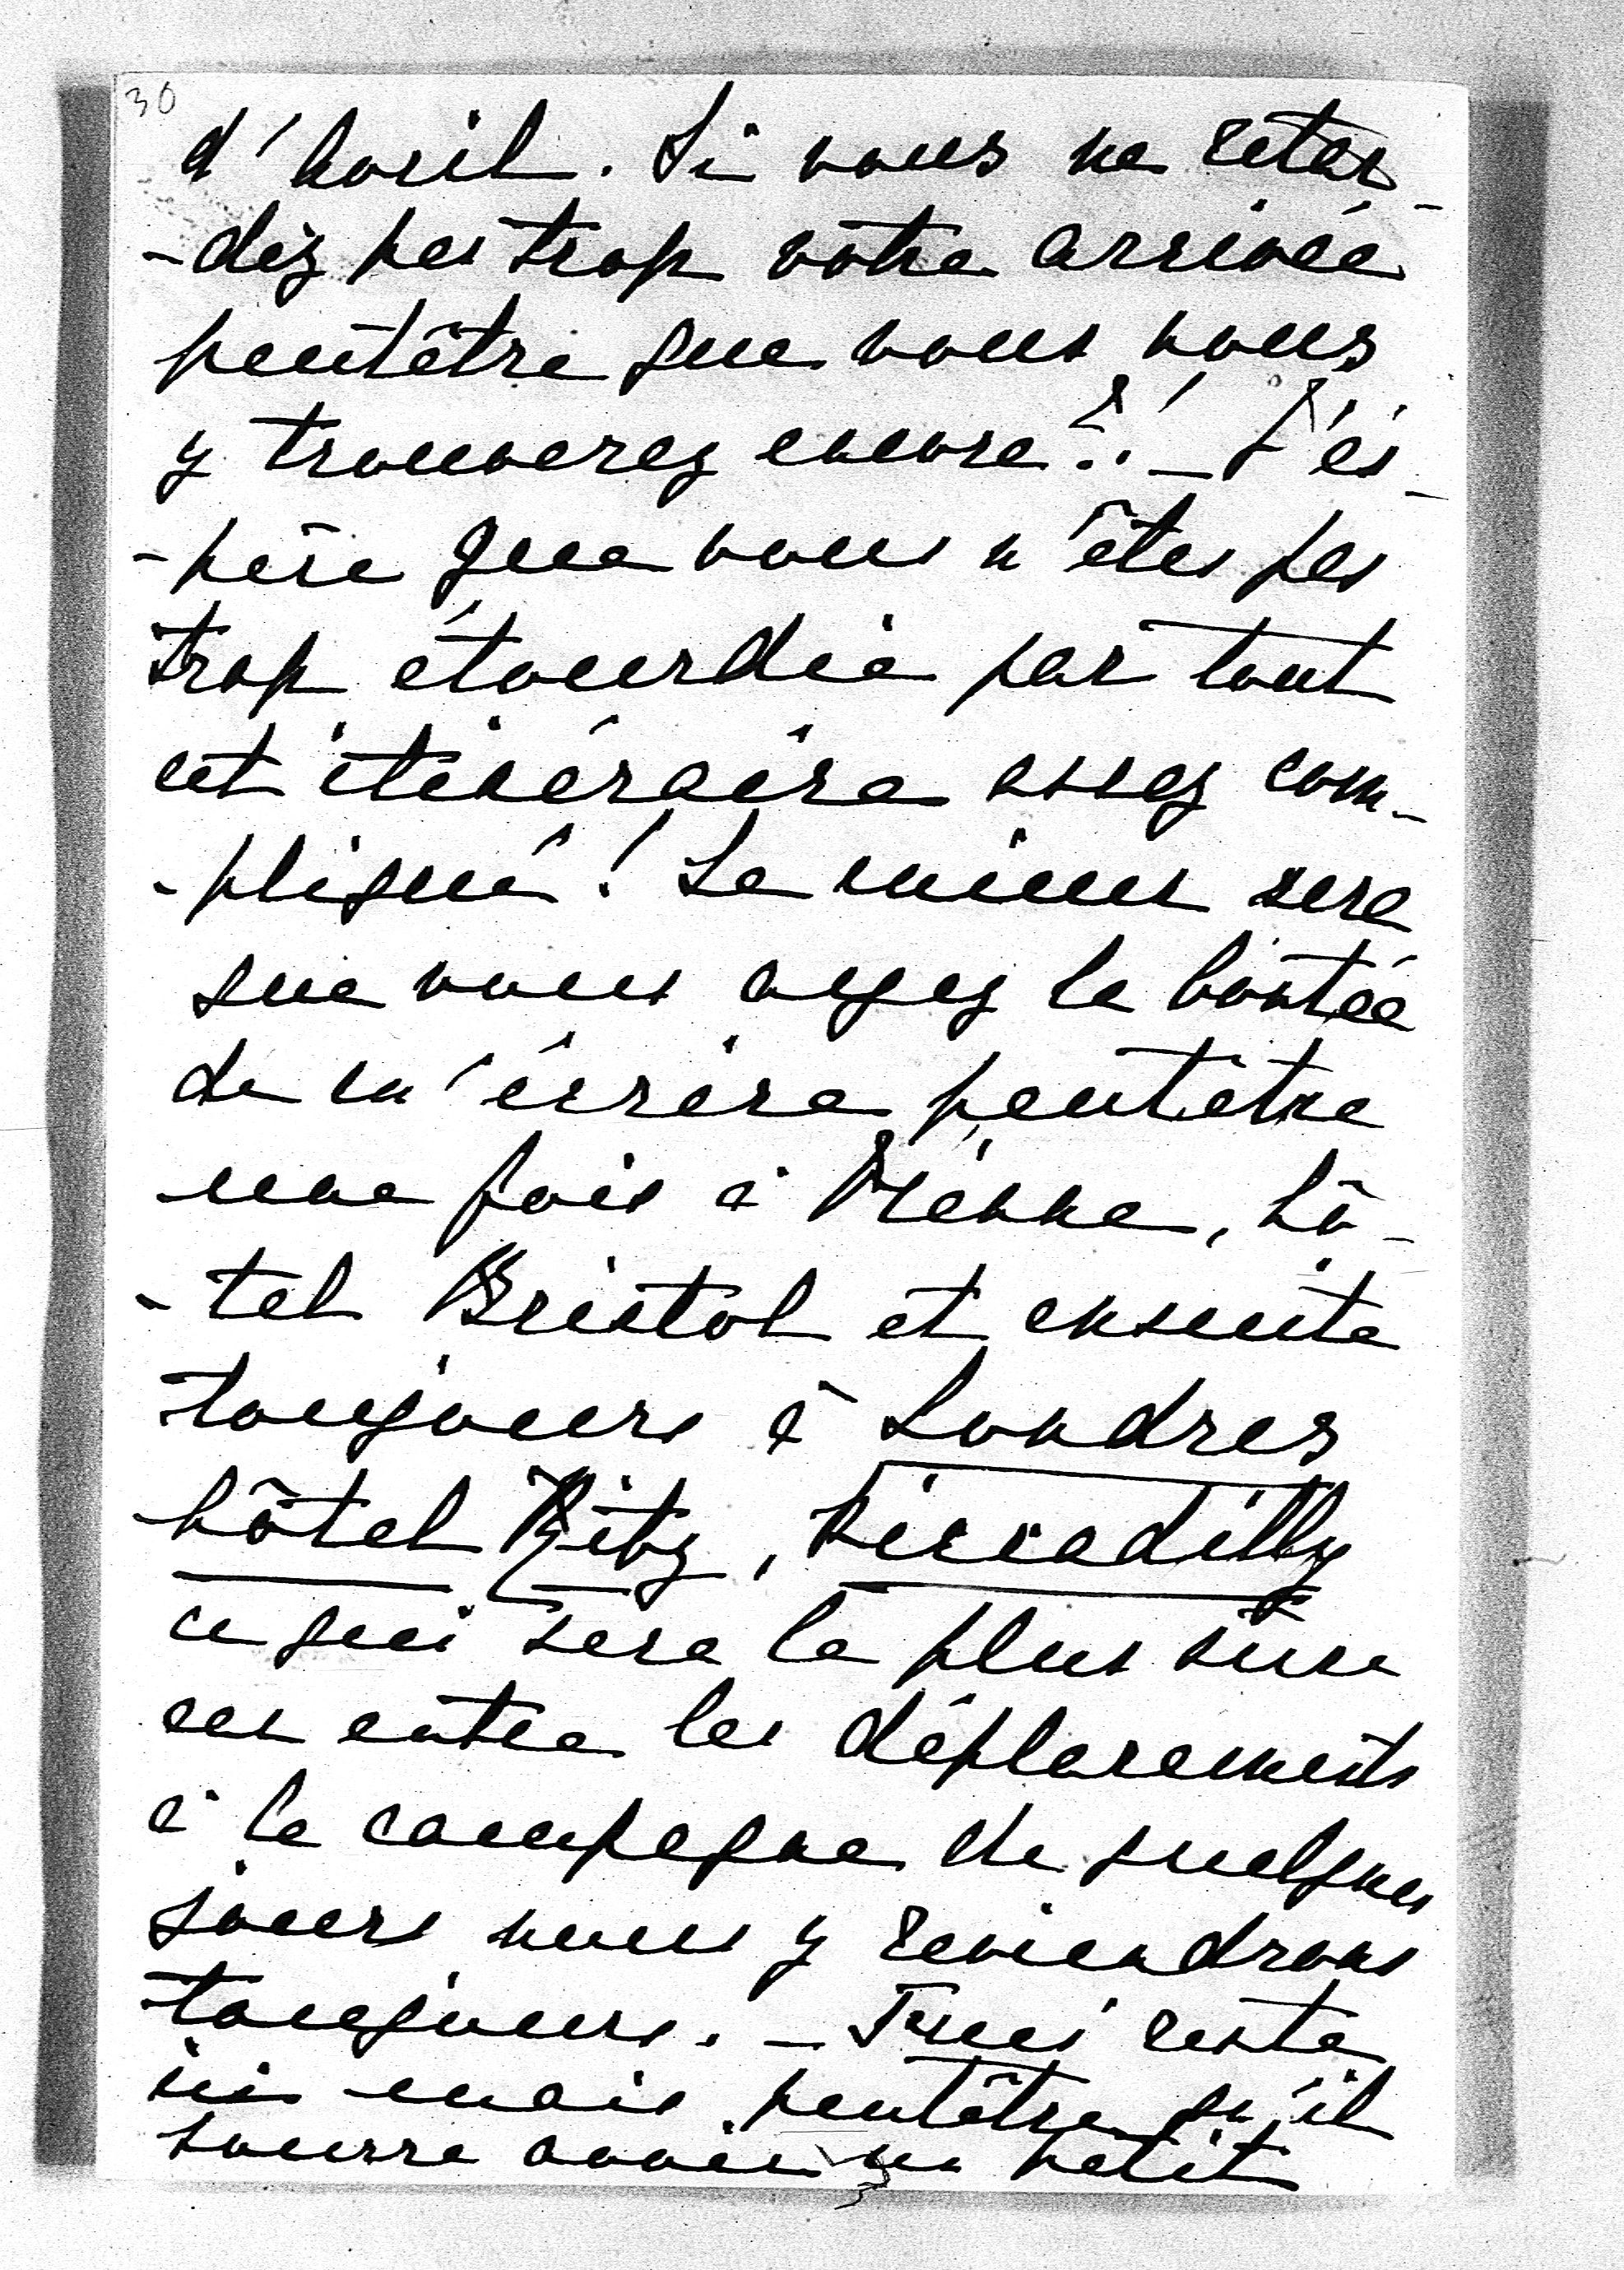 30
d'Avril. Si vous ne retar-
-dez pas trop votre arrivée
peutêtre que vous nous
y trouverez encore?! – J'és-
-père que vous n'êtes pas
trop étourdie par tout
cet itinéraire assez com-
-pliqué! Le mieux sera
que vous ayez la bontée
de m'écrire peutêtre
une fois à Vienne, hô-
-tel Bristol et ensuite
toujours à Londres
hôtel Ritz, Piccadilly
ce qui sera le plus sure
car entre les déplacements
à la campagne de quelques
jours nous y reviendrons
toujours. – reste
ici mais peutêtre qu'il
pourra avoir un petit